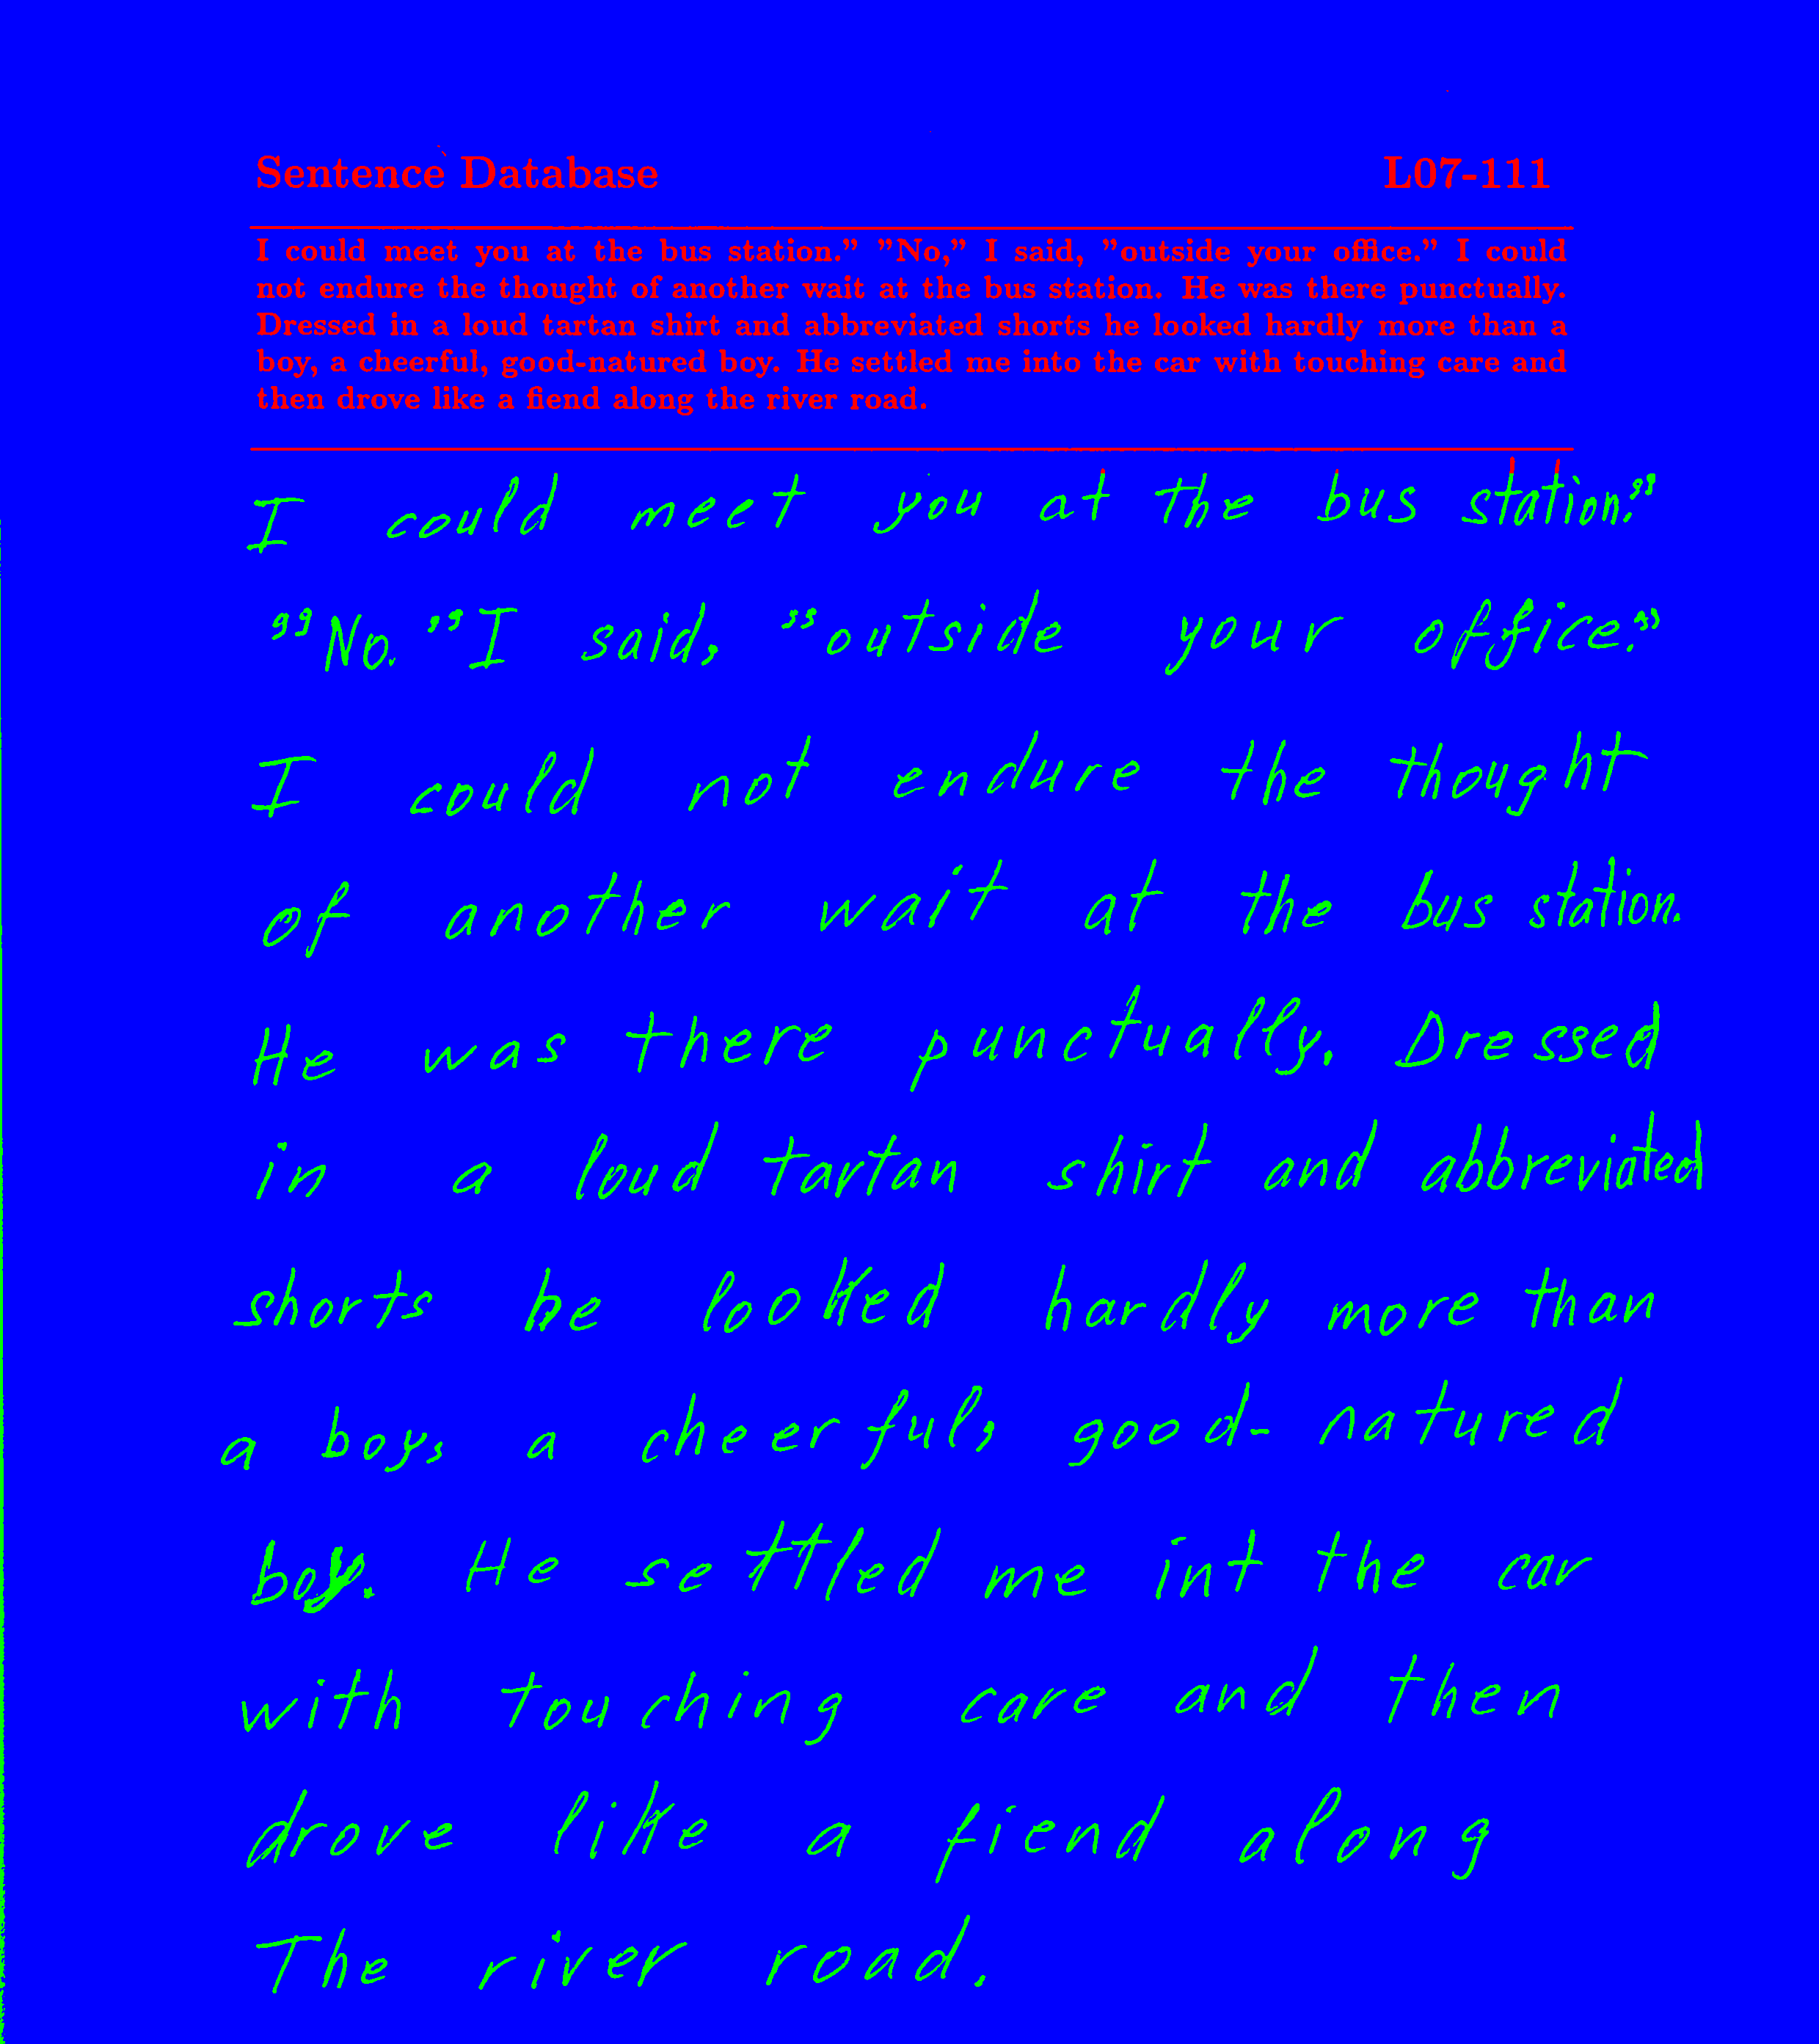 Sentence Database L07-111
I could meet you at the bus station." "No," I said, "outside your office." I could
not endure the thought of another wait at the bus station. He was there punctually.
Dressed in a loud tartan shirt and abbreviated shorts he looked hardly more than a
boy, a cheerful, good-natured boy. He settled me into the car with touching care and
then drove like a fiend along the river road.
I could meet you at the bus station."
"No." I said, "outside your office."
I could not endure the thought
of another wait at the bus station.
He was there punctually. Dressed
in a loud tartan shirt and abbreviated
shorts he looked hardly more than
a boy, a cheerful, good-natured
boy. He settled me int the car
with touching care and then
drove like a fiend along
The river road.